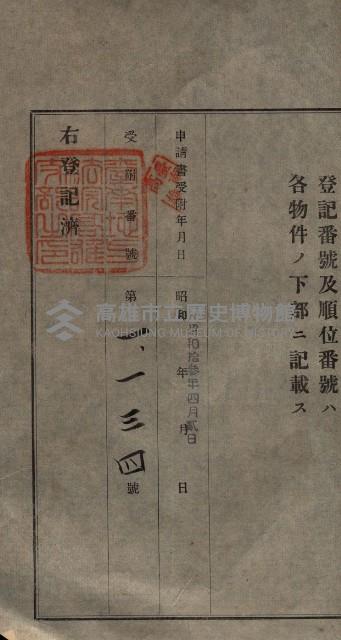 登記番號及順位番號ハ
各物件ノ下部ニ記載ス
申請書受附年月日
昭和 年 月 日
昭和拾参年四月貳日
受附番號
第一、一三四號
右登記濟
高雄市立歷史博物館
KAOHSIUNG MUSEUM OF HISTORY